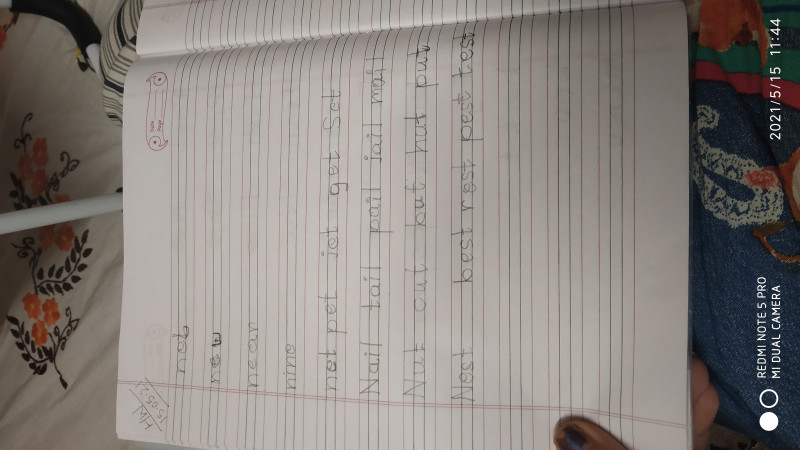 H.W
15.05.21
Date
Page
not
new
near
nine
net pet jet get Set
Nail tail pail jail mail
Nut cut but hut put
Nest best rest pest test
REDMI NOTE 5 PRO
MI DUAL CAMERA
2021/5/15 11:44